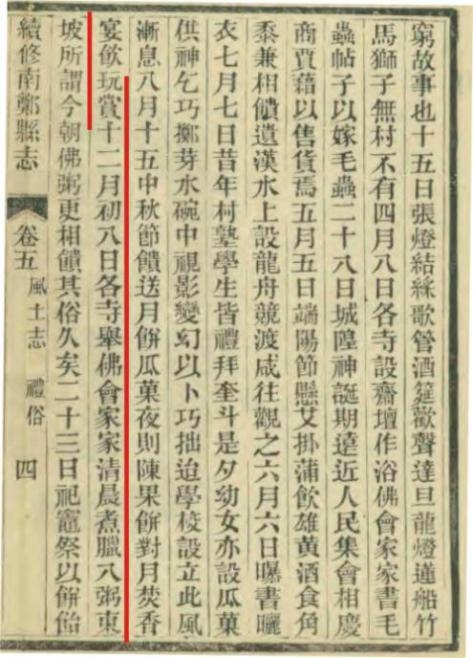 窮故事也十五日張燈結綵歌管酒筵歡聲達旦龍燈蓮船竹
馬獅子無村不有四月八日各寺設齋壇作浴佛會家家書毛
蟲帖子以嫁毛蟲二十八日城隍神誕期遠近人民集會相慶
商賈藉以售貨焉五月五日端陽節懸艾掛蒲飲雄黃酒食角
黍兼相饋遺漢水上設龍舟競渡咸往觀之六月六日曝書曬
衣七月七日昔年村塾學生皆禮拜奎斗是夕幼女亦設瓜菓
供神乞巧擲芽水碗中視影變幻以卜巧拙迨學校設立此風
漸息八月十五中秋節饋送月餅瓜菓夜則陳果餅對月焚香
宴飲玩賞十二月初八日各寺舉佛會家家清晨煮臘八粥東
坡所謂今朝佛粥更相饋其俗久矣二十三日祀竈祭以餅飴
續修南鄭縣志 卷五 風土志 禮俗 四